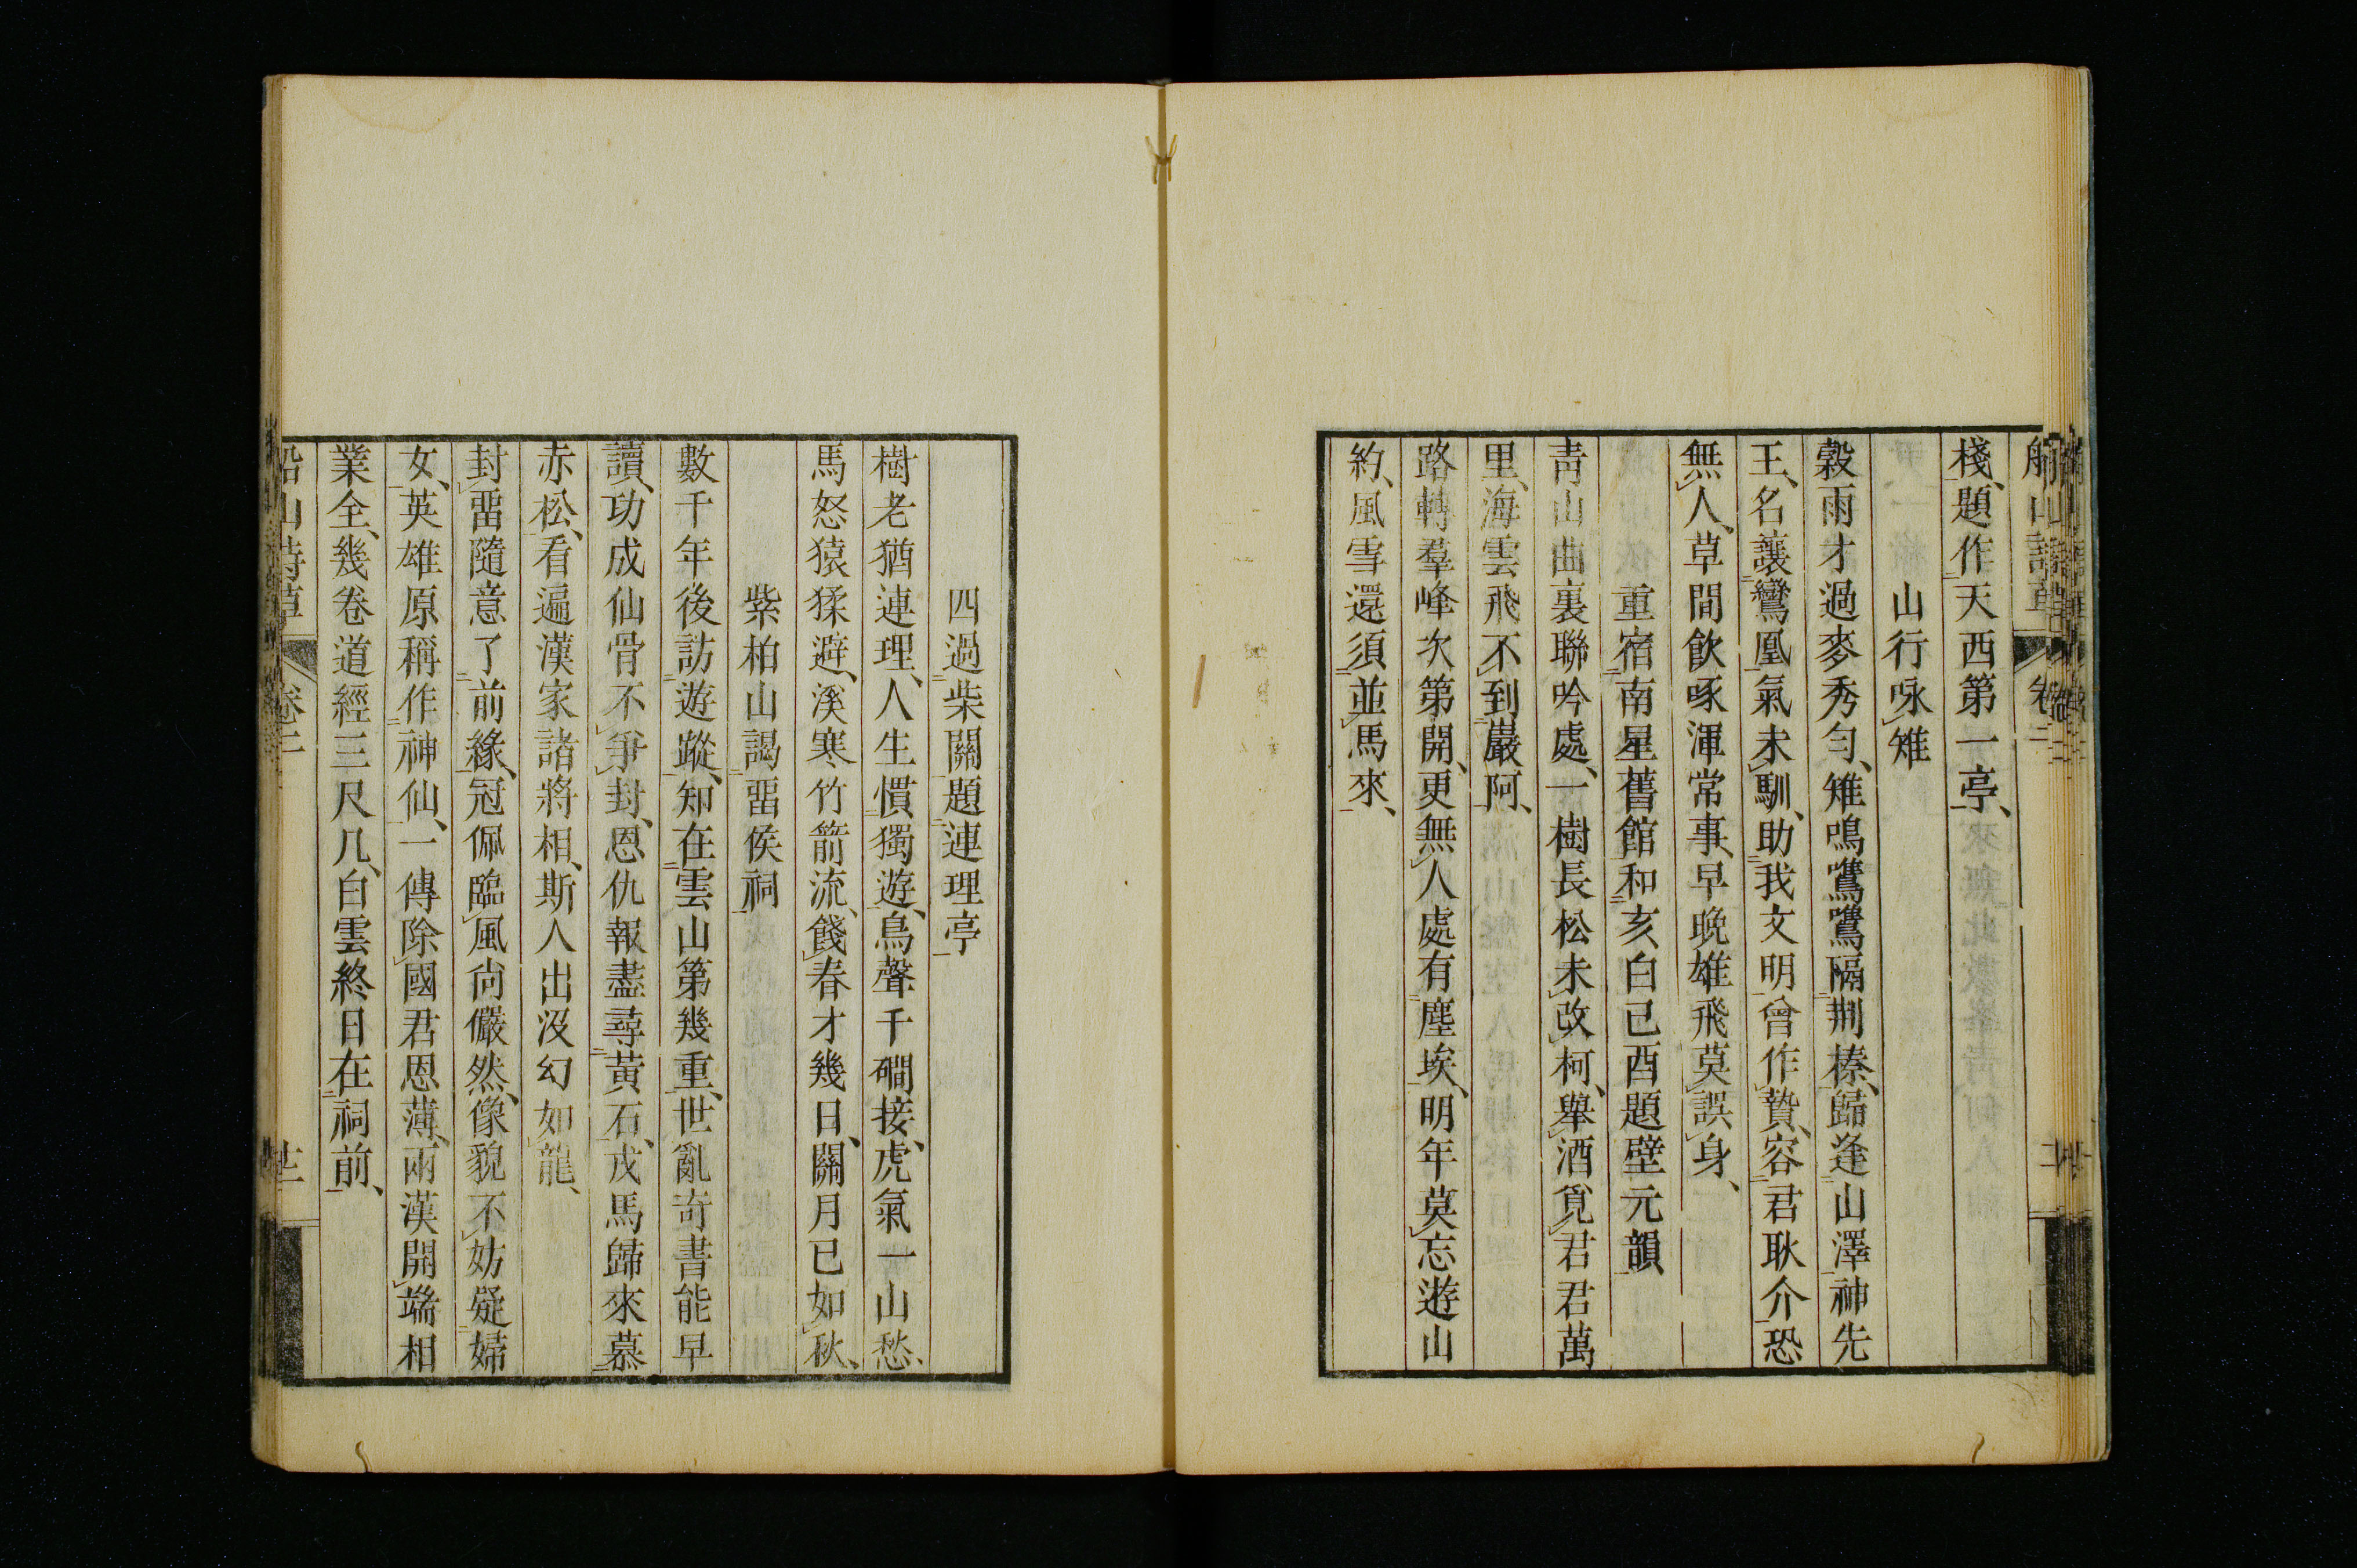 棧、題作天西第一亭、
山行咏雉
穀雨才過麥秀匀、雉鳴鷕鷕隔荆榛、歸逢山澤神先
王、名讓鸞凰氣未馴、助我文明曾作贄、容君耿介恐
無人、草間飲啄渾常事、早晚雄飛莫誤身、
重宿南星舊館和亥白己酉題壁元韻
靑山曲裏聯吟處、一樹長松未改柯、舉酒覓君君萬
里、海雲飛不到巖阿、
路轉羣峰次第開、更無人處有塵埃、明年莫忘遊山
約、風雪還須並馬來、
四過柴關題連理亭
樹老猶連理、人生慣獨遊、鳥聲千磵接、虎氣一山愁、
馬怒猿猱避、溪寒竹箭流、餞春才幾日、關月已如秋、
紫柏山謁畱侯祠
數千年後訪遊蹤、知在雲山第幾重、世亂奇書能早
讀、功成仙骨不爭封、恩仇報盡尋黃石、戎馬歸來慕
赤松、看遍漢家諸將相、斯人出沒幻如龍、
封畱隨意了前緣、冠佩臨風尙儼然、像貌不妨疑婦
女、英雄原稱作神仙、一傳除國君恩薄、兩漢開端相
業全、幾卷道經三尺几、白雲終日在祠前、
船山詩草 卷二